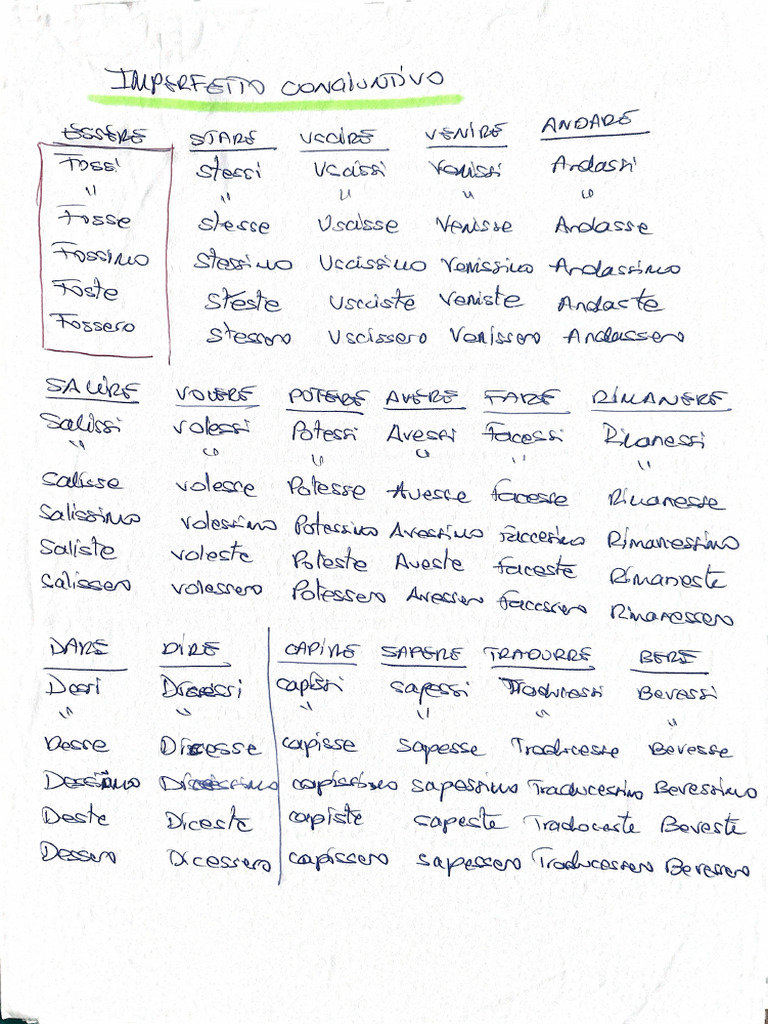 IMPERFETTO CONGIUNTIVO
ESSERE STARE USCIRE VENIRE ANDARE
Fossi Stessi Uscissi Venissi Andassi
" " " " "
Fosse Stesse Uscisse Venisse Andasse
Fossimo Stessimo Uscissimo Venissimo Andassimo
Foste Steste Usciste Veniste Andaste
Fossero Stessero Uscissero Venissero Andassero
SALIRE VOLERE POTERE AVERE FARE RIMANERE
Salissi Volessi Potessi Avessi Facessi Rimanessi
" " " " " "
Salisse Volesse Potesse Avesse Facesse Rimanesse
Salissimo Volessimo Potessimo Avessimo Facessimo Rimanessimo
Saliste Voleste Poteste Aveste Faceste Rimaneste
Salissero Volessero Potessero Avessero Facessero Rimanessero
DARE DIRE CAPIRE SAPERE TRADURRE BERE
Dessi Dicessi Capissi Sapessi Traducessi Bevessi
" " " " " "
Desse Dicesse Capisse Sapesse Traducesse Bevesse
Dessimo Dicessimo Capissimo Sapessimo Traducessimo Bevessimo
Deste Diceste Capiste Sapeste Traduceste Beveste
Dessero Dicessero Capissero Sapessero Traducessero Bevessero